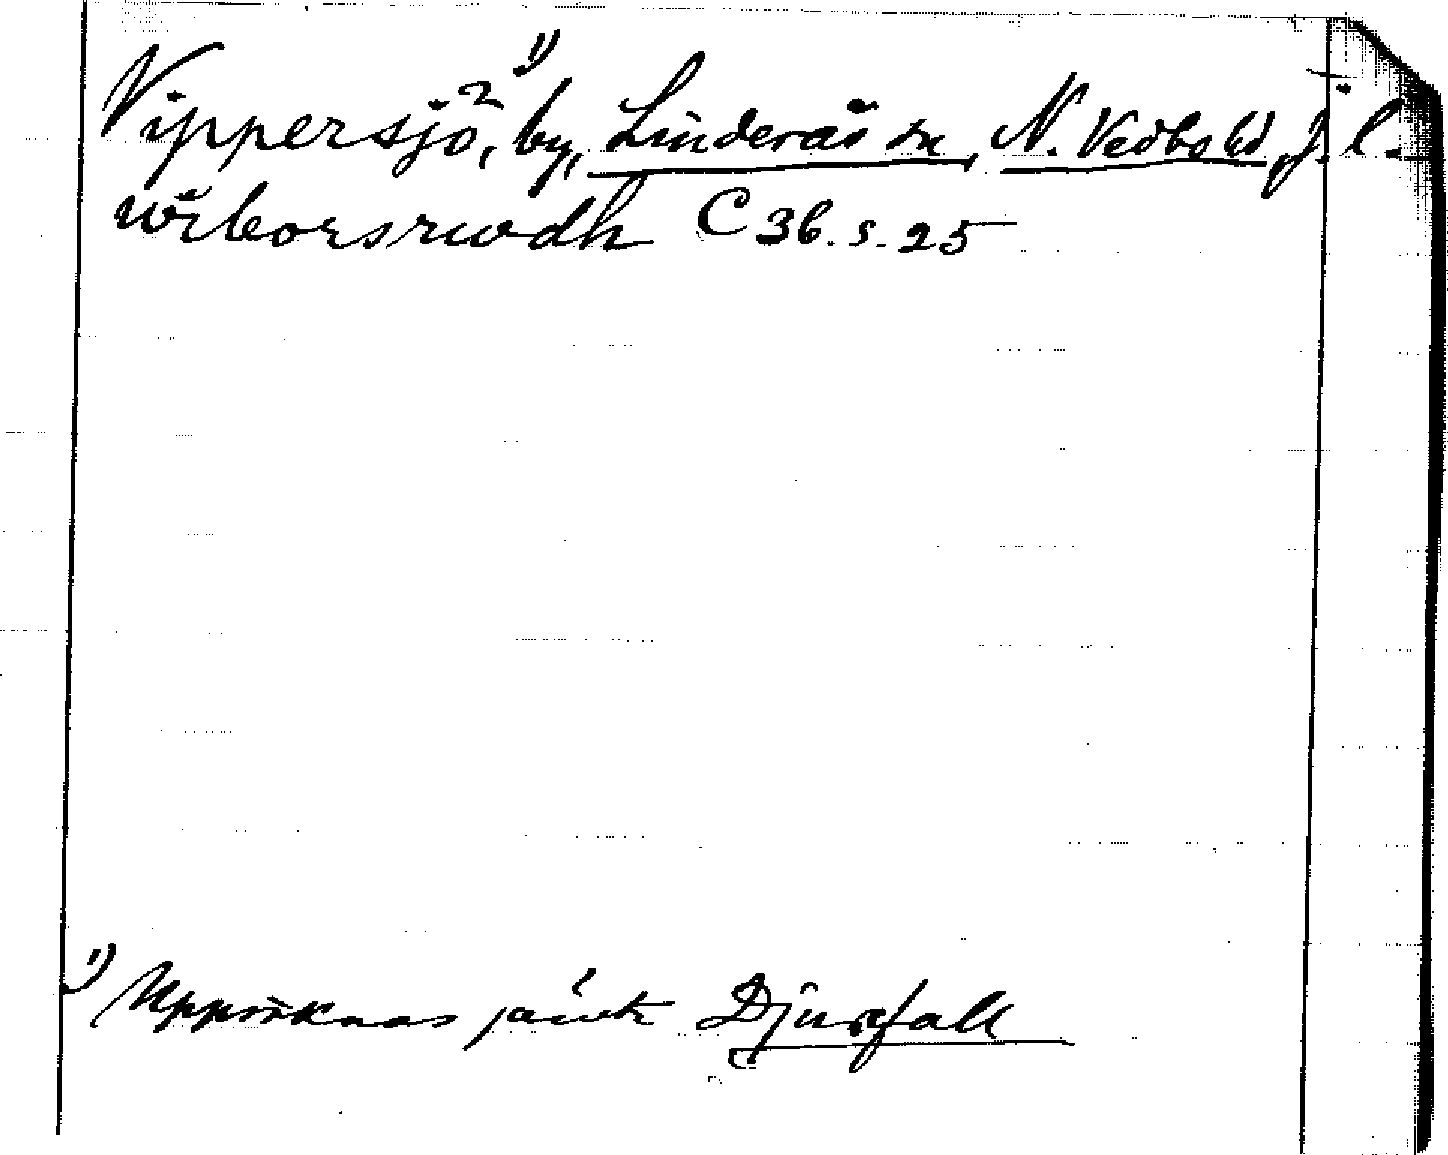 Vippersjö, by, ¹) Linderås sn, N. Vedbo hd, J. l.
wiborsrwdh C 36. s. 25
¹) Uppräknas jämte Djurfall